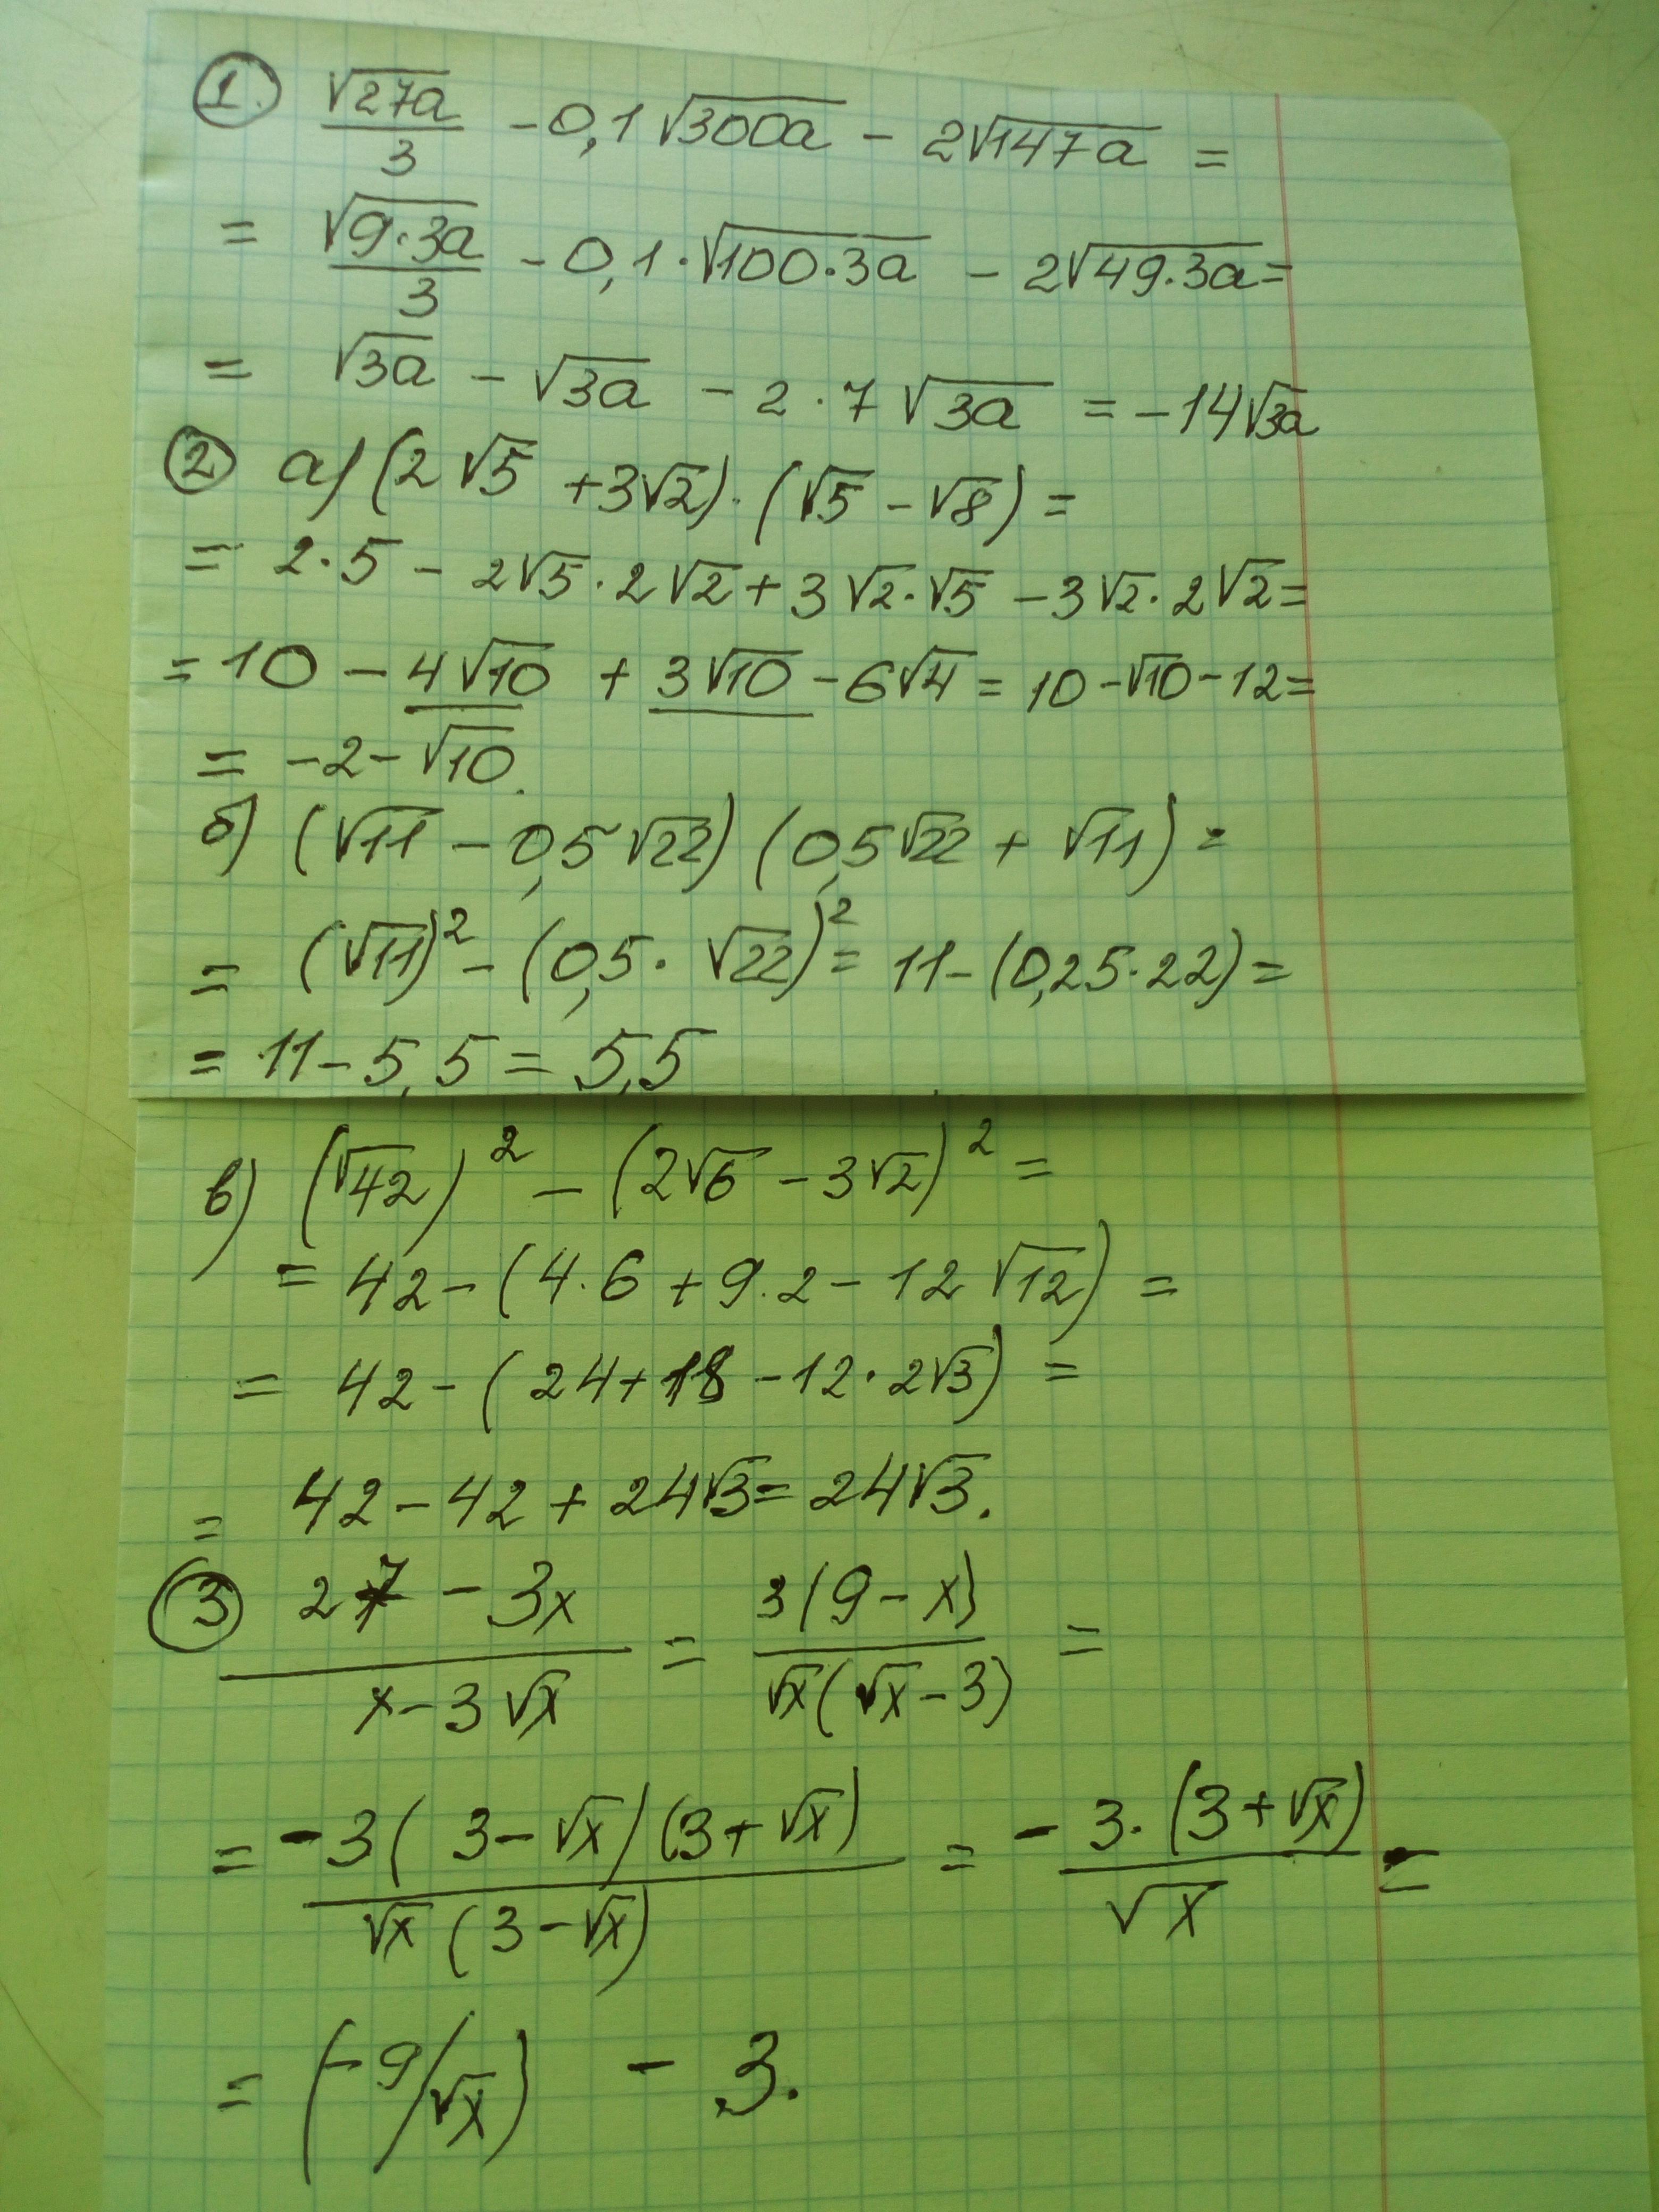 1. √27a/3 - 0,1√300a - 2√147a =
= √9·3a/3 - 0,1·√100·3a - 2√49·3a =
= √3a - √3a - 2·7√3a = -14√3a
2 а) (2√5 + 3√2)·(√5 - √8) =
= 2·5 - 2√5·2√2 + 3√2·√5 - 3√2·2√2 =
= 10 - 4√10 + 3√10 - 6√4 = 10 - √10 - 12 =
= -2 - √10.
б) (√11 - 0,5√22) (0,5√22 + √11) =
= (√11)² - (0,5·√22)² = 11 - (0,25·22) =
= 11 - 5,5 = 5,5
в) (√42)² - (2√6 - 3√2)² =
= 42 - (4·6 + 9·2 - 12√12) =
= 42 - (24 + 18 - 12·2√3) =
= 42 - 42 + 24√3 = 24√3.
3 27 - 3x / x - 3√x = 3(9 - x) / √x(√x - 3) =
= -3(3 - √x)(3 + √x) / √x(3 - √x) = -3·(3 + √x) / √x =
= (-9/√x) - 3.